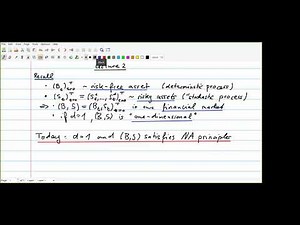 Lecture 2
Recall
• (B_t)_{t=0}^T – risk-free asset (deterministic process)
• (S_t)_{t=0}^T = (S_t^1, ..., S_t^d)_{t=0}^T – risky assets (stochastic process)
⇒ (B, S) = (B_t, S_t)_{t=0}^T is our financial market
• if d=1, (B,S) is "one-dimensional"
Today: d=1 and (B,S) satisfies NA principles